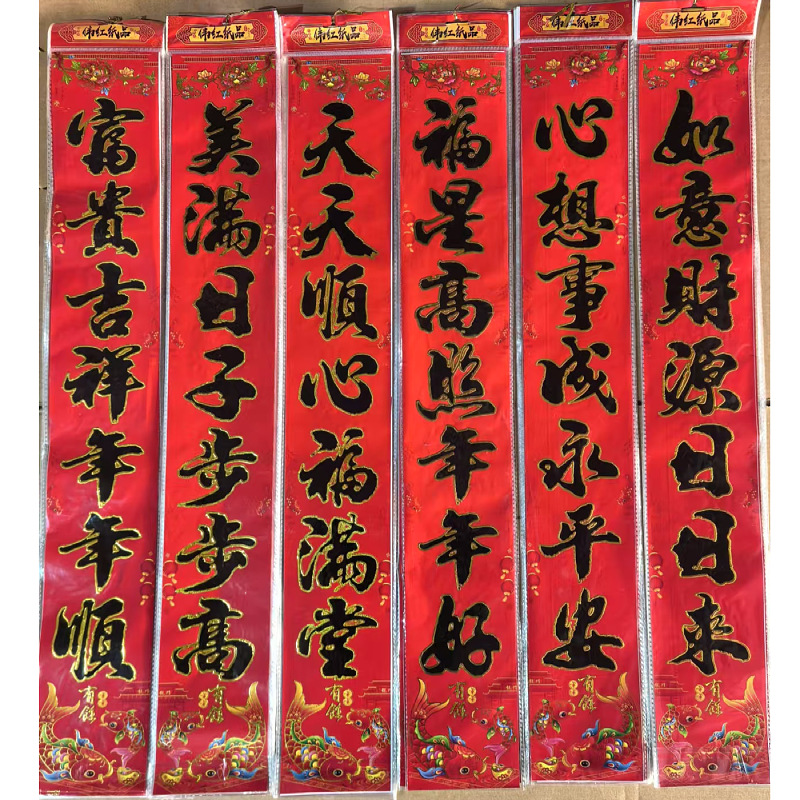 伟红纸品
富貴吉祥年年順
年年有餘
伟红纸品
美满日子步步高
年年有餘
伟红纸品
天天順心福满堂
年年有餘
伟红纸品
福星高照年年好
年年有餘
伟红纸品
心想事成永平安
年年有餘
伟红纸品
如意財源日日来
年年有餘